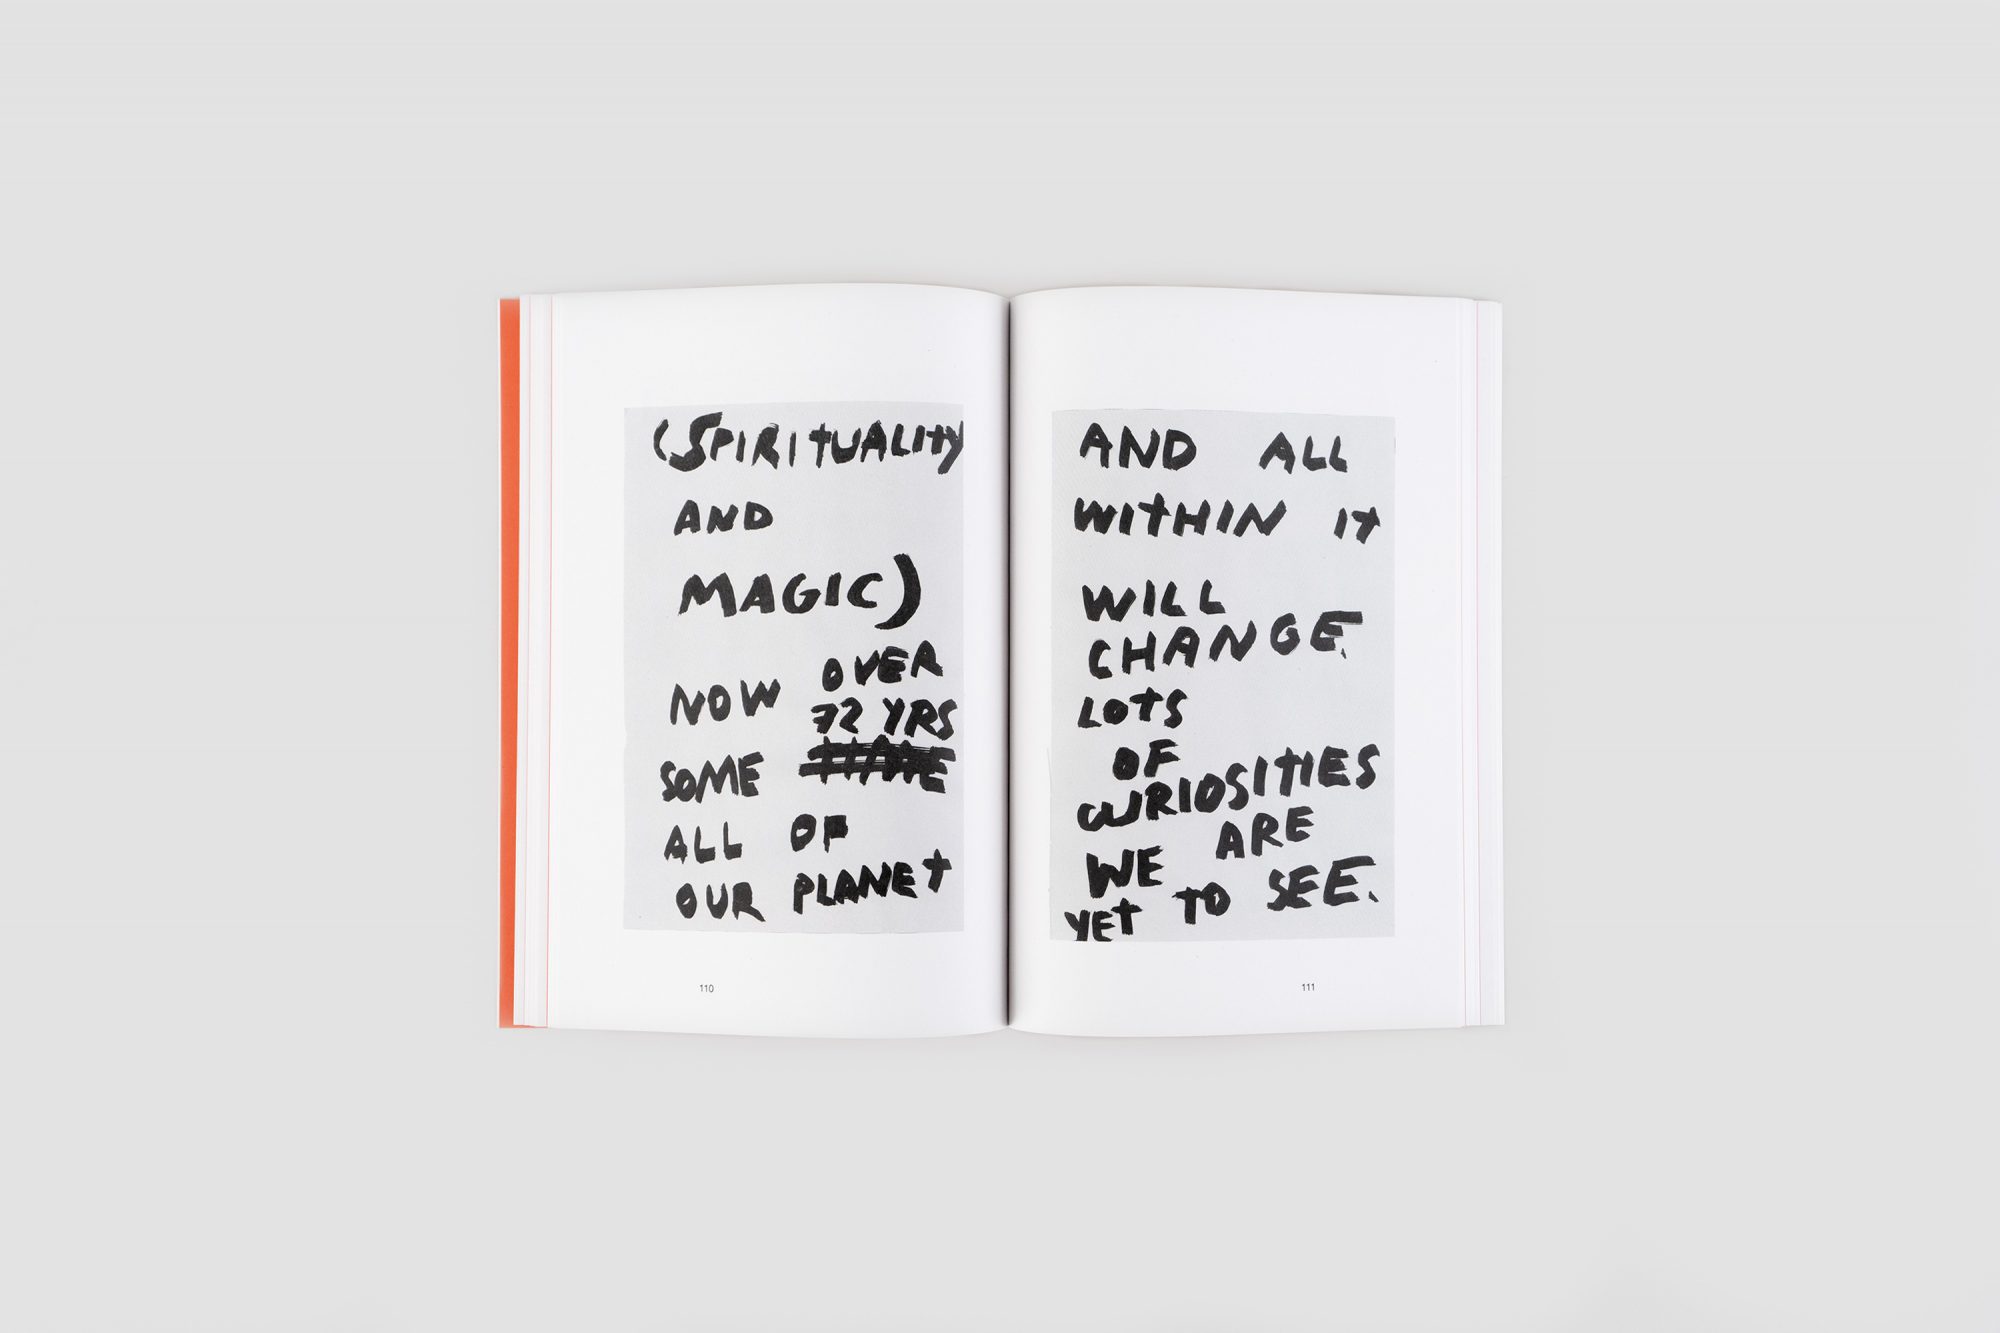 (SPIRITUALITY
AND
MAGIC)
NOW OVER
72 YRS
SOME
ALL OF
OUR PLANET
110
AND ALL
WITHIN IT
WILL
CHANGE.
LOTS
OF
CURIOSITIES
WE ARE
YET TO SEE.
111